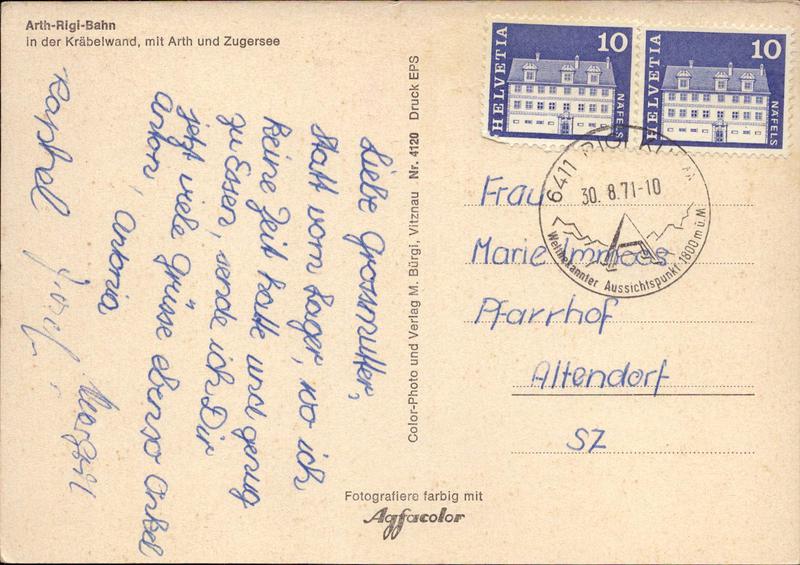 Arth-Rigi-Bahn
in der Kräbelwand, mit Arth und Zugersee
Liebe Grossmutter,
Statt vom Lager, wo ich
keine Zeit hatte und genug
zu Essen, sende ich Dir
jetzt viele Grüsse ebenso Onkel
Anton, Antonia
Raphael Josef
Color-Photo und Verlag M. Bürgi, Vitznau Nr. 4120 Druck EPS
Fotografiere farbig mit
Agfacolor
HELVETIA 10 NÄFELS
HELVETIA 10 NÄFELS
6411 RIGI
30.8.71-10
Weltbekannter Aussichtspunkt 1800 m ü.M.
Frau
Marie Immoos
Pfarrhof
Altendorf
SZ